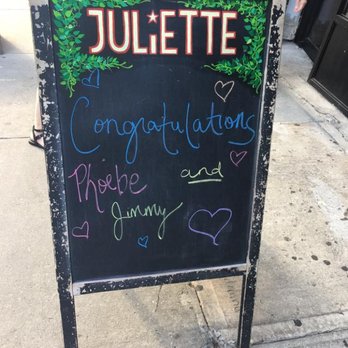 JULIETTE
Congratulations
Phoebe and
Jimmy